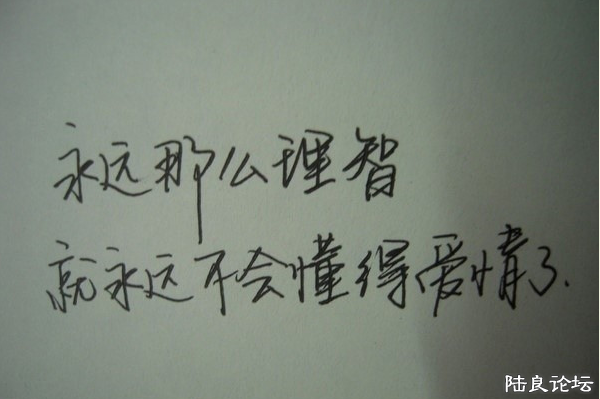 永远那么理智
就永远不会懂得爱情了.
陆良论坛